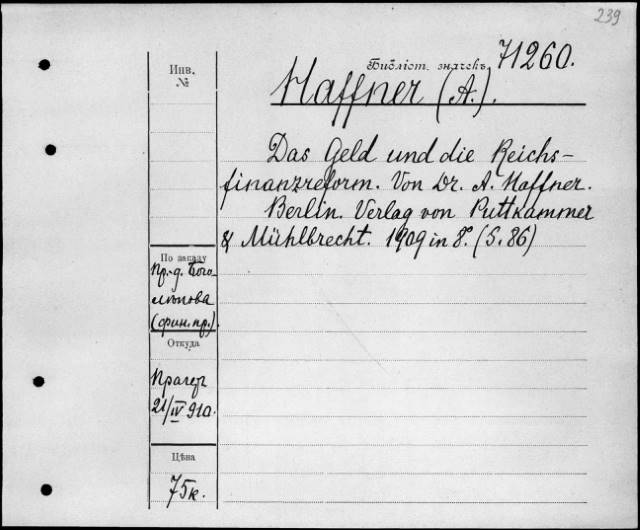 239
Инв.
№
Библіот. значекъ 71260.
Haffner (A.).
Das Geld und die Reichs-
finanzreform. Von Dr. A. Haffner.
Berlin. Verlag von Puttkammer
& Mühlbrecht. 1909 in 8°. (S. 86)
По заказу
Пр.-д. Бого-
лѣпова
(фин. пр.).
Откуда
Прагеръ
21/IV 910.
Цѣна
75к.